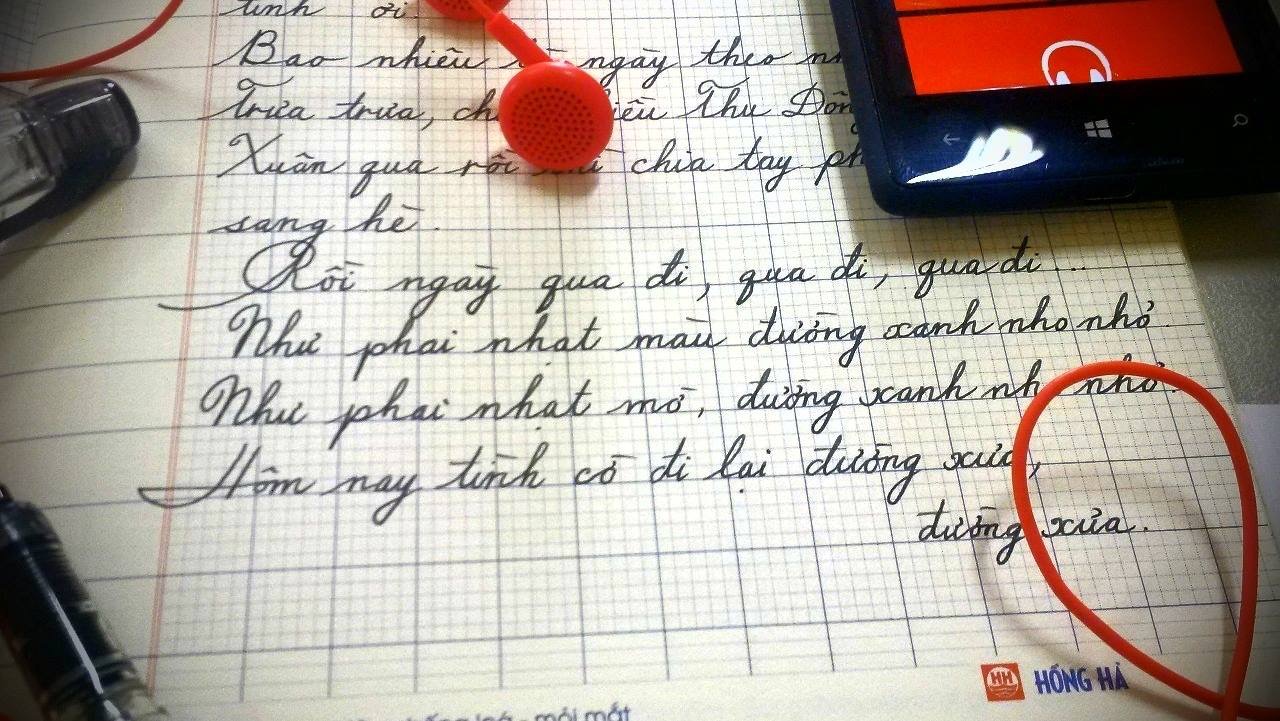 tình ơi.
Bao nhiêu ngày theo
Trưa trưa, Thu Đông
Xuân qua rồi chia tay
sang hè.
Rồi ngày qua đi, qua đi, qua đi...
Như phai nhạt màu đường xanh nho nhỏ.
Như phai nhạt mờ, đường xanh nho nhỏ.
Hôm nay tình cờ đi lại đường xưa,
đường xưa.
HỒNG HÀ
mỏi mắt